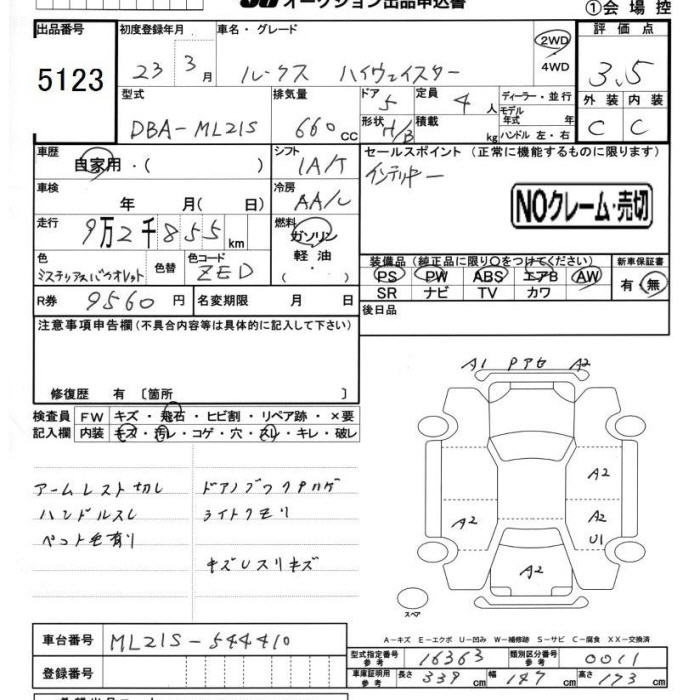 オークション出品申込書
①会場控
出品番号
5123
初度登録年月
23 3月
車名・グレード
ルークス ハイウェイスター
2WD
・
4WD
評価点
3.5
外装 内装
C C
型式
DBA-ML21S
排気量
660cc
ドア
5
定員
4人
形状
H/B
積載
kg
ディーラー・並行
モデル
年式 年
ハンドル 左・右
車歴
自家用・( )
シフト
IA/T
セールスポイント (正常に機能するものに限ります)
インテリキー
NOクレーム・売切
車検
年 月( 日)
冷房
AA/C
走行
9万2千855km
燃料
ガソリン
軽油
( ・ )
色
ミステリアスバイオレット
色替
色コード
ZED
装備品(純正品に限り○をつけてください)
PS PW ABS エアB AW
SR ナビ TV カワ
新車保証書
有・無
R券 9560円
名変期限 月 日
後日品
注意事項申告欄(不具合内容等は具体的に記入して下さい)
修復歴 有〔箇所 〕
検査員
記入欄
FW キズ・飛石・ヒビ割・リペア跡・×要
内装 キズ・汚レ・コゲ・穴・スレ・キレ・破レ
アームレスト切レ
ドアノブウクアカゲ
ハンドルスレ
ライトクモリ
ペット毛有り
キズUスリキズ
A1 PアセA2
A2
A2
A2
U1
A2
スペア
A-キズ E-エクボ U-凹み W-補修跡 S-サビ C-腐食 XX-交換済
車台番号
ML21S-544410
登録番号
型式指定番号
参考
16363
類別区分番号
参考
0011
車庫証明用
参考
長さ 339 幅 147 高さ 173 cm